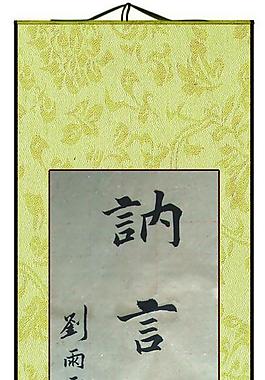 訥言
劉雨